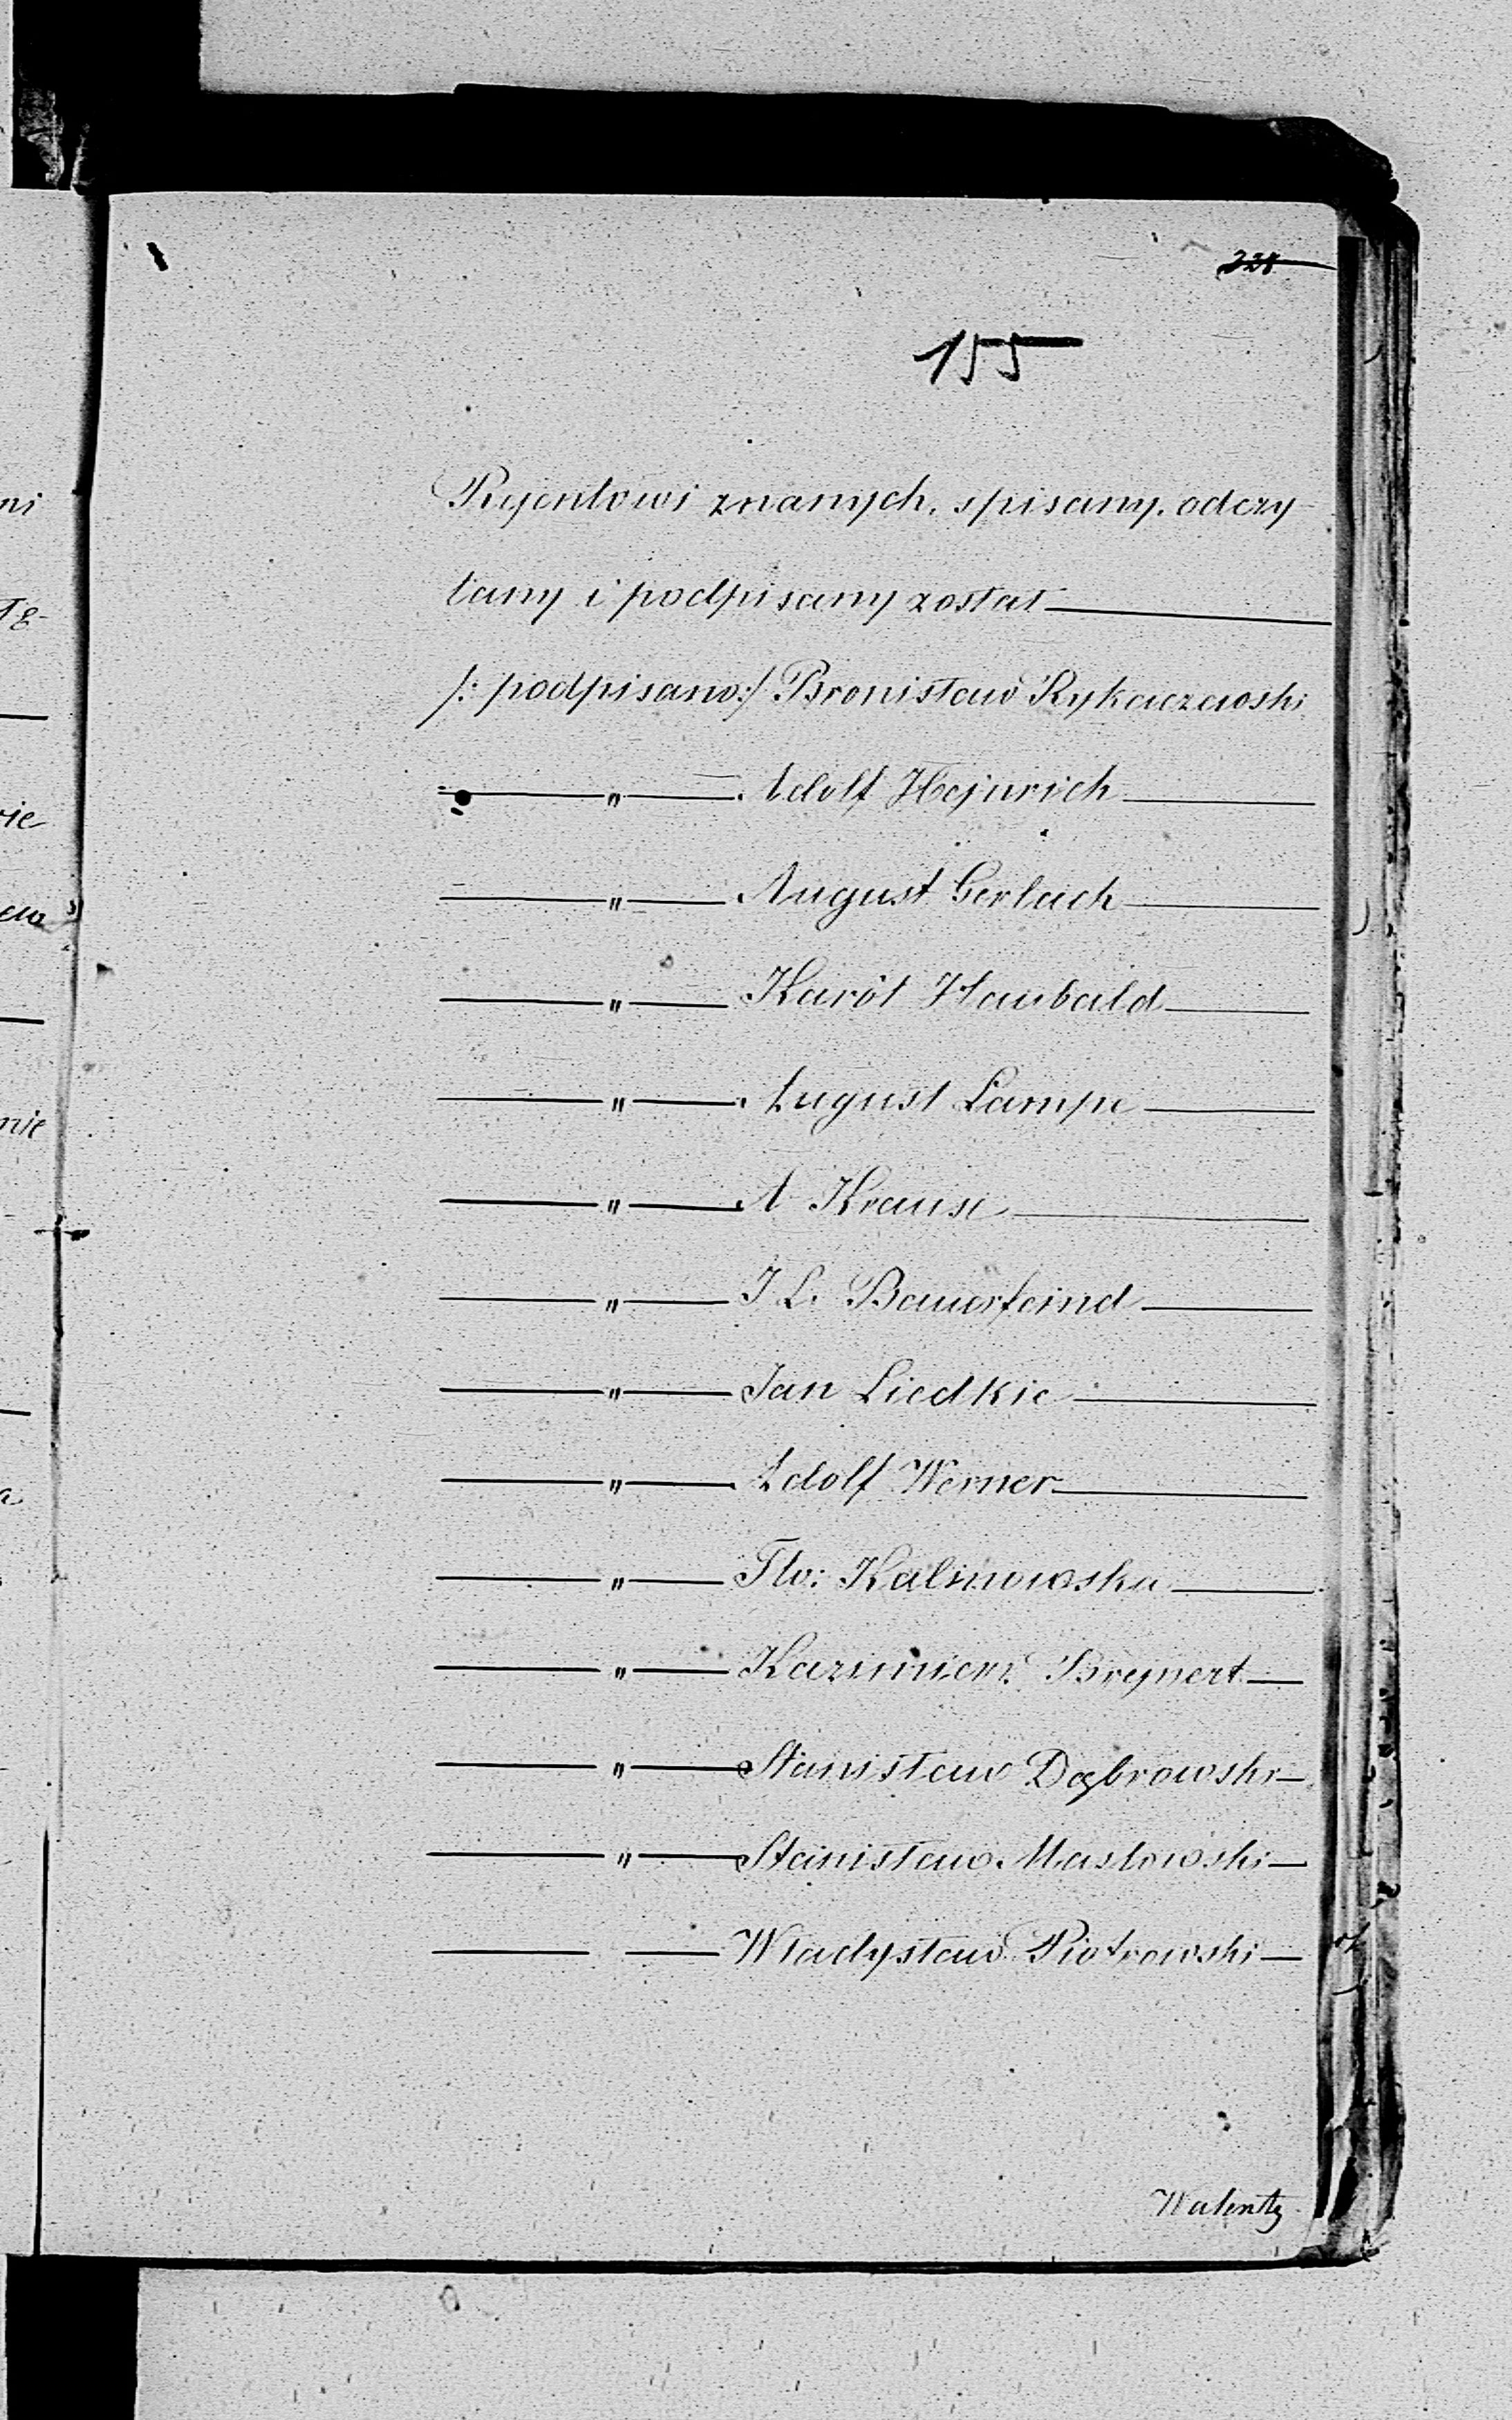 238
155
Rejentowi znanych, spisany, odczy
tany i podpisany został
/: podpisano:/ Bronisław Rykaczewski
" Adolf Hejnrich
" August Gerlach
" Karól Haubold
" August Lampe
" A Krause
" J L. Bauerfeind
" Jan Liedkie
" Adolf Werner
" Flo: Kalinowska
" Kazimierz Brejnert
" Stanisław Dąbrowski
" Stanisław Masłowski
Władysław Piotrowski
Walenty